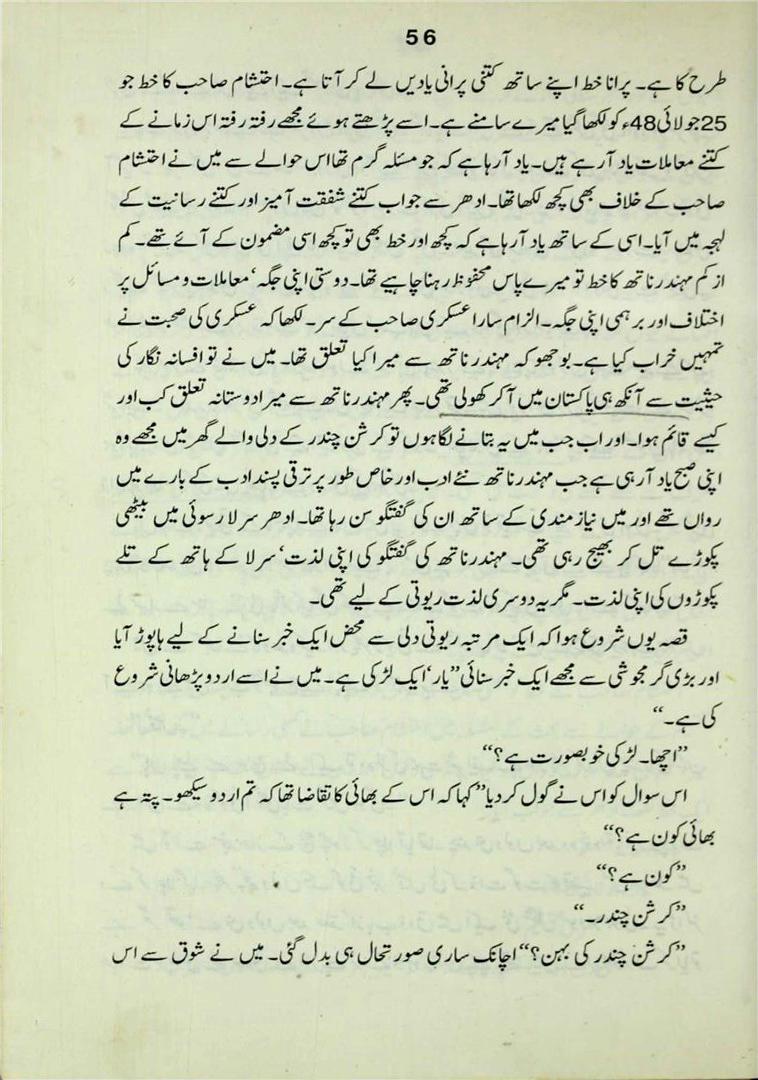 56
طرح کا ہے۔ پرانا خط اپنے ساتھ کتنی پرانی یادیں لے کر آتا ہے۔ احتشام صاحب کا خط جو
25جولائی48ء کو لکھا گیا میرے سامنے ہے۔ اسے پڑھتے ہوئے مجھے رفتہ رفتہ اس زمانے کے
کتنے معاملات یاد آرہے ہیں۔ یاد آرہا ہے کہ جو مسئلہ گرم تھا اس حوالے سے میں نے احتشام
صاحب کے خلاف بھی کچھ لکھا تھا۔ ادھر سے جواب کتنے شفقت آمیز اور کتنے رسانیت کے
لہجہ میں آیا۔ اسی کے ساتھ یاد آرہا ہے کہ کچھ اور خط بھی تو کچھ اسی مضمون کے آئے تھے۔ کم
از کم مہندر ناتھ کا خط تو میرے پاس محفوظ رہنا چاہیے تھا۔ دوستی اپنی جگہ‘ معاملات و مسائل پر
اختلاف اور برہمی اپنی جگہ۔ الزام سارا عسکری صاحب کے سر۔ لکھا کہ عسکری کی صحبت نے
تمہیں خراب کیا ہے۔ بوجھو کہ مہندر ناتھ سے میرا کیا تعلق تھا۔ میں نے تو افسانہ نگار کی
حیثیت سے آنکھ ہی پاکستان میں آکر کھولی تھی۔ پھر مہندر ناتھ سے میرا دوستانہ تعلق کب اور
کیسے قائم ہوا۔ اور اب جب میں یہ بتانے لگا ہوں تو کرشن چندر کے دلی والے گھر میں مجھے وہ
اپنی صبح یاد آرہی ہے جب مہندر ناتھ نئے ادب اور خاص طور پر ترقی پسند ادب کے بارے میں
رواں تھے اور میں نیاز مندی کے ساتھ ان کی گفتگو سن رہا تھا۔ ادھر سرلا رسوئی میں بیٹھی
پکوڑے تل کر بھیج رہی تھی۔ مہندر ناتھ کی گفتگو کی اپنی لذت‘ سرلا کے ہاتھ کے تلے
پکوڑوں کی اپنی لذت۔ مگر یہ دوسری لذت ریوتی کے لیے تھی۔
قصہ یوں شروع ہوا کہ ایک مرتبہ ریوتی دلی سے محض ایک خبر سنانے کے لیے ہاپوڑ آیا
اور بڑی گرمجوشی سے مجھے ایک خبر سنائی ”یار‘ ایک لڑکی ہے۔ میں نے اسے اردو پڑھانی شروع
کی ہے۔“
”اچھا۔ لڑکی خوبصورت ہے؟“
اس سوال کو اس نے گول کر دیا ”کہا کہ اس کے بھائی کا تقاضا تھا کہ تم اردو سیکھو۔ پتہ ہے
بھائی کون ہے؟“
”کون ہے؟“
”کرشن چندر۔“
”کرشن چندر کی بہن؟“ اچانک ساری صورتحال ہی بدل گئی۔ میں نے شوق سے اس